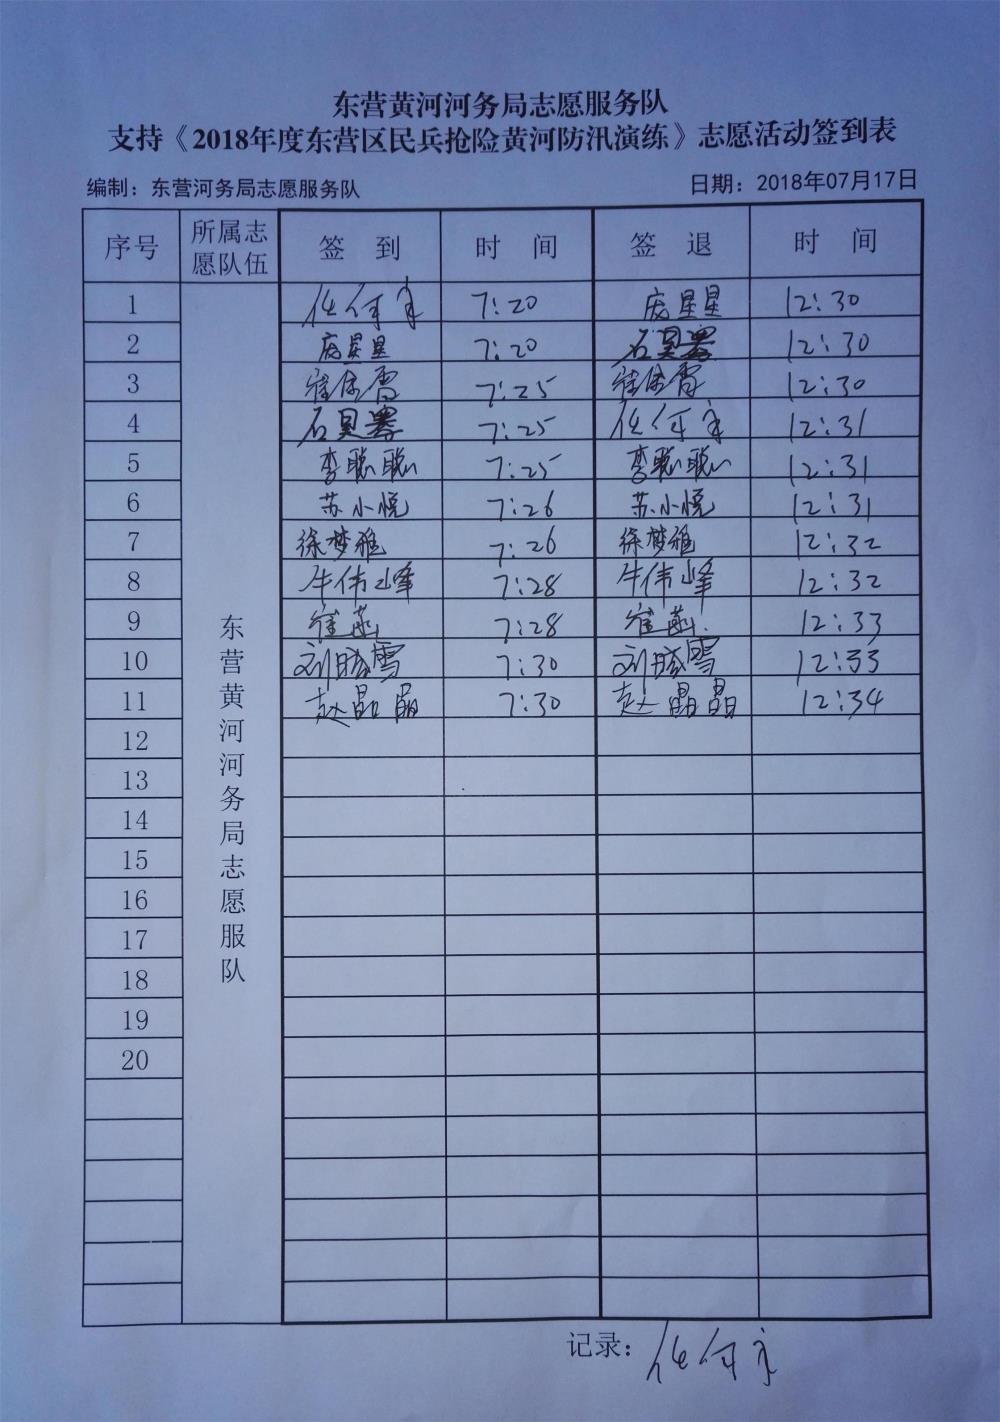 东营黄河河务局志愿服务队
支持《2018年度东营区民兵抢险黄河防汛演练》志愿活动签到表
编制：东营河务局志愿服务队 日期：2018年07月17日
序号 所属志愿队伍 签 到 时 间 签 退 时 间
东营黄河河务局志愿服务队
1 7:20 庞星星 12:30
2 庞星星 7:20 12:30
3 7:25 12:30
4 7:25 12:31
5 李聪聪 7:25 李聪聪 12:31
6 苏小悦 7:26 苏小悦 12:31
7 徐梦雅 7:26 徐梦雅 12:32
8 牛伟峰 7:28 牛伟峰 12:32
9 崔菡 7:28 崔菡 12:33
10 刘晓雪 7:30 刘晓雪 12:33
11 赵晶晶 7:30 赵晶晶 12:34
12
13
14
15
16
17
18
19
20
记录：